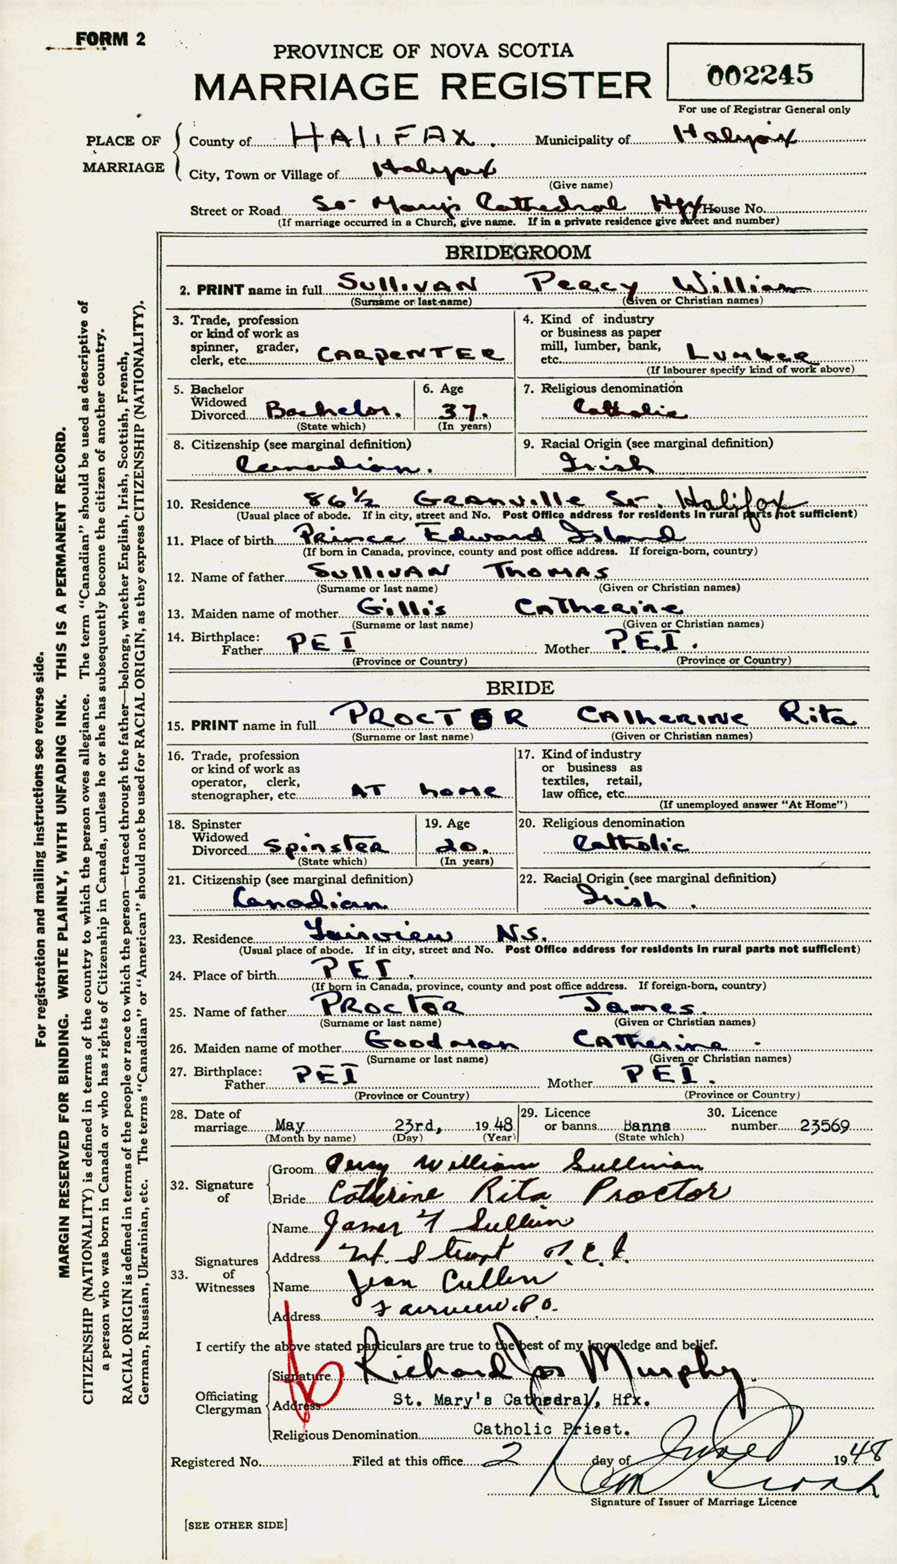 FORM 2
PROVINCE OF NOVA SCOTIA
MARRIAGE REGISTER
002245
For use of Registrar General only
PLACE OF MARRIAGE
County of HALIFAX. Municipality of Halifax
City, Town or Village of Halifax
(Give name)
Street or Road St. Mary's Cathedral Hfx House No.
(If marriage occurred in a Church, give name. If in a private residence give street and number)
BRIDEGROOM
2. PRINT name in full SULLIVAN Percy William
(Surname or last name) (Given or Christian names)
3. Trade, profession or kind of work as spinner, grader, clerk, etc. CARPENTER
4. Kind of industry or business as paper mill, lumber, bank, etc. LUMBER
(If labourer specify kind of work above)
5. Bachelor Widowed Divorced Bachelor.
(State which)
6. Age 37.
(In years)
7. Religious denomination Catholic
8. Citizenship (see marginal definition) Canadian.
9. Racial Origin (see marginal definition) Irish
10. Residence 86 1/2 GRANVILLE St. Halifax
(Usual place of abode. If in city, street and No. Post Office address for residents in rural parts not sufficient)
11. Place of birth Prince Edward Island
(If born in Canada, province, county and post office address. If foreign-born, country)
12. Name of father SULLIVAN THOMAS
(Surname or last name) (Given or Christian names)
13. Maiden name of mother Gillis CATHERINE
(Surname or last name) (Given or Christian names)
14. Birthplace:
Father PEI Mother P.E.I.
(Province or Country) (Province or Country)
BRIDE
15. PRINT name in full PROCTOR CATHERINE Rita
(Surname or last name) (Given or Christian names)
16. Trade, profession or kind of work as operator, clerk, stenographer, etc. AT home
17. Kind of industry or business as textiles, retail, law office, etc.
(If unemployed answer "At Home")
18. Spinster Widowed Divorced Spinster
(State which)
19. Age 20.
(In years)
20. Religious denomination Catholic
21. Citizenship (see marginal definition) Canadian
22. Racial Origin (see marginal definition) Irish.
23. Residence Fairview N.S.
(Usual place of abode. If in city, street and No. Post Office address for residents in rural parts not sufficient)
24. Place of birth PEI.
(If born in Canada, province, county and post office address. If foreign-born, country)
25. Name of father PROCTOR James.
(Surname or last name) (Given or Christian names)
26. Maiden name of mother Goodman CATherine.
(Surname or last name) (Given or Christian names)
27. Birthplace:
Father PEI Mother PEI.
(Province or Country) (Province or Country)
28. Date of marriage May 23rd, 1948
(Month by name) (Day) (Year)
29. Licence or banns Banns
(State which)
30. Licence number 23569
32. Signature of
Groom Percy William Sullivan
Bride Catherine Rita Proctor
33. Signatures of Witnesses
Name James F Sullivan
Address Mt. Stewart P.E.I.
Name Jean Cullen
Address Fairview P.O.
I certify the above stated particulars are true to the best of my knowledge and belief.
Officiating Clergyman
Signature Richard Jos Murphy
Address St. Mary's Cathedral, Hfx.
Religious Denomination Catholic Priest.
Registered No. Filed at this office 2 day of June 1948
Signature of Issuer of Marriage Licence
[SEE OTHER SIDE]
For registration and mailing instructions see reverse side.
MARGIN RESERVED FOR BINDING. WRITE PLAINLY, WITH UNFADING INK. THIS IS A PERMANENT RECORD.
CITIZENSHIP (NATIONALITY) is defined in terms of the country to which the person owes allegiance. The term "Canadian" should be used as descriptive of
a person who was born in Canada or who has rights of Citizenship in Canada, unless he or she has subsequently become the citizen of another country.
RACIAL ORIGIN is defined in terms of the people or race to which the person—traced through the father—belongs, whether English, Irish, Scottish, French,
German, Russian, Ukrainian, etc. The terms "Canadian" or "American" should not be used for RACIAL ORIGIN, as they express CITIZENSHIP (NATIONALITY).